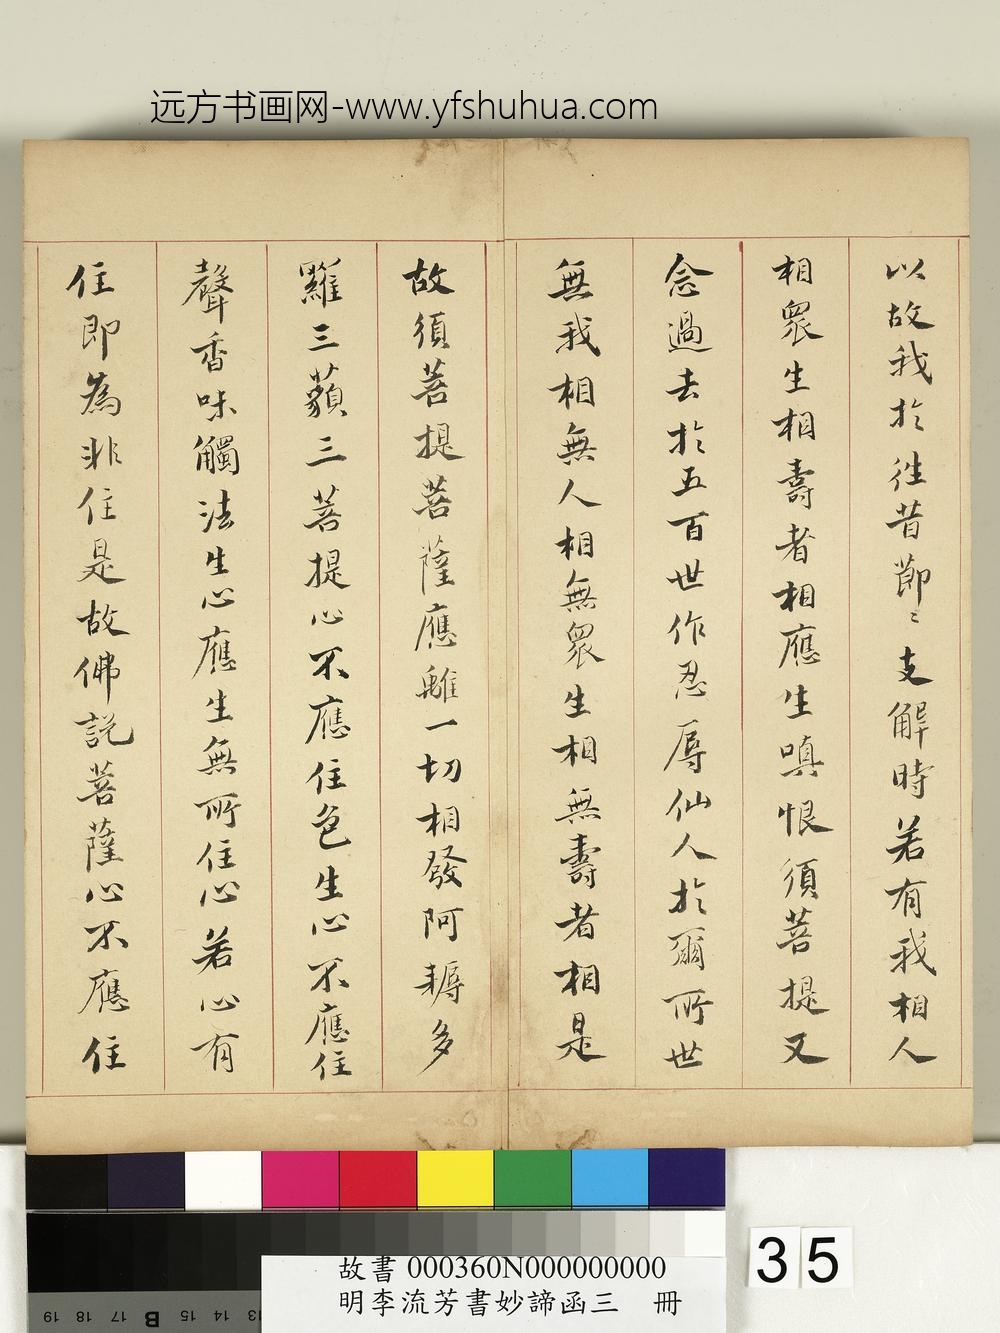 远方书画网-www.yfshuhua.com
以故我於往昔節〻支解時若有我相人
相衆生相壽者相應生嗔恨須菩提又
念過去於五百世作忍辱仙人於爾所世
無我相無人相無衆生相無壽者相是
故須菩提菩薩應離一切相發阿耨多
羅三藐三菩提心不應住色生心不應住
聲香味觸法生心應生無所住心若心有
住即為非住是故佛說菩薩心不應住
35
故書 000360N000000000
明李流芳書妙諦函三 冊
19 18 17 B 15 14 13